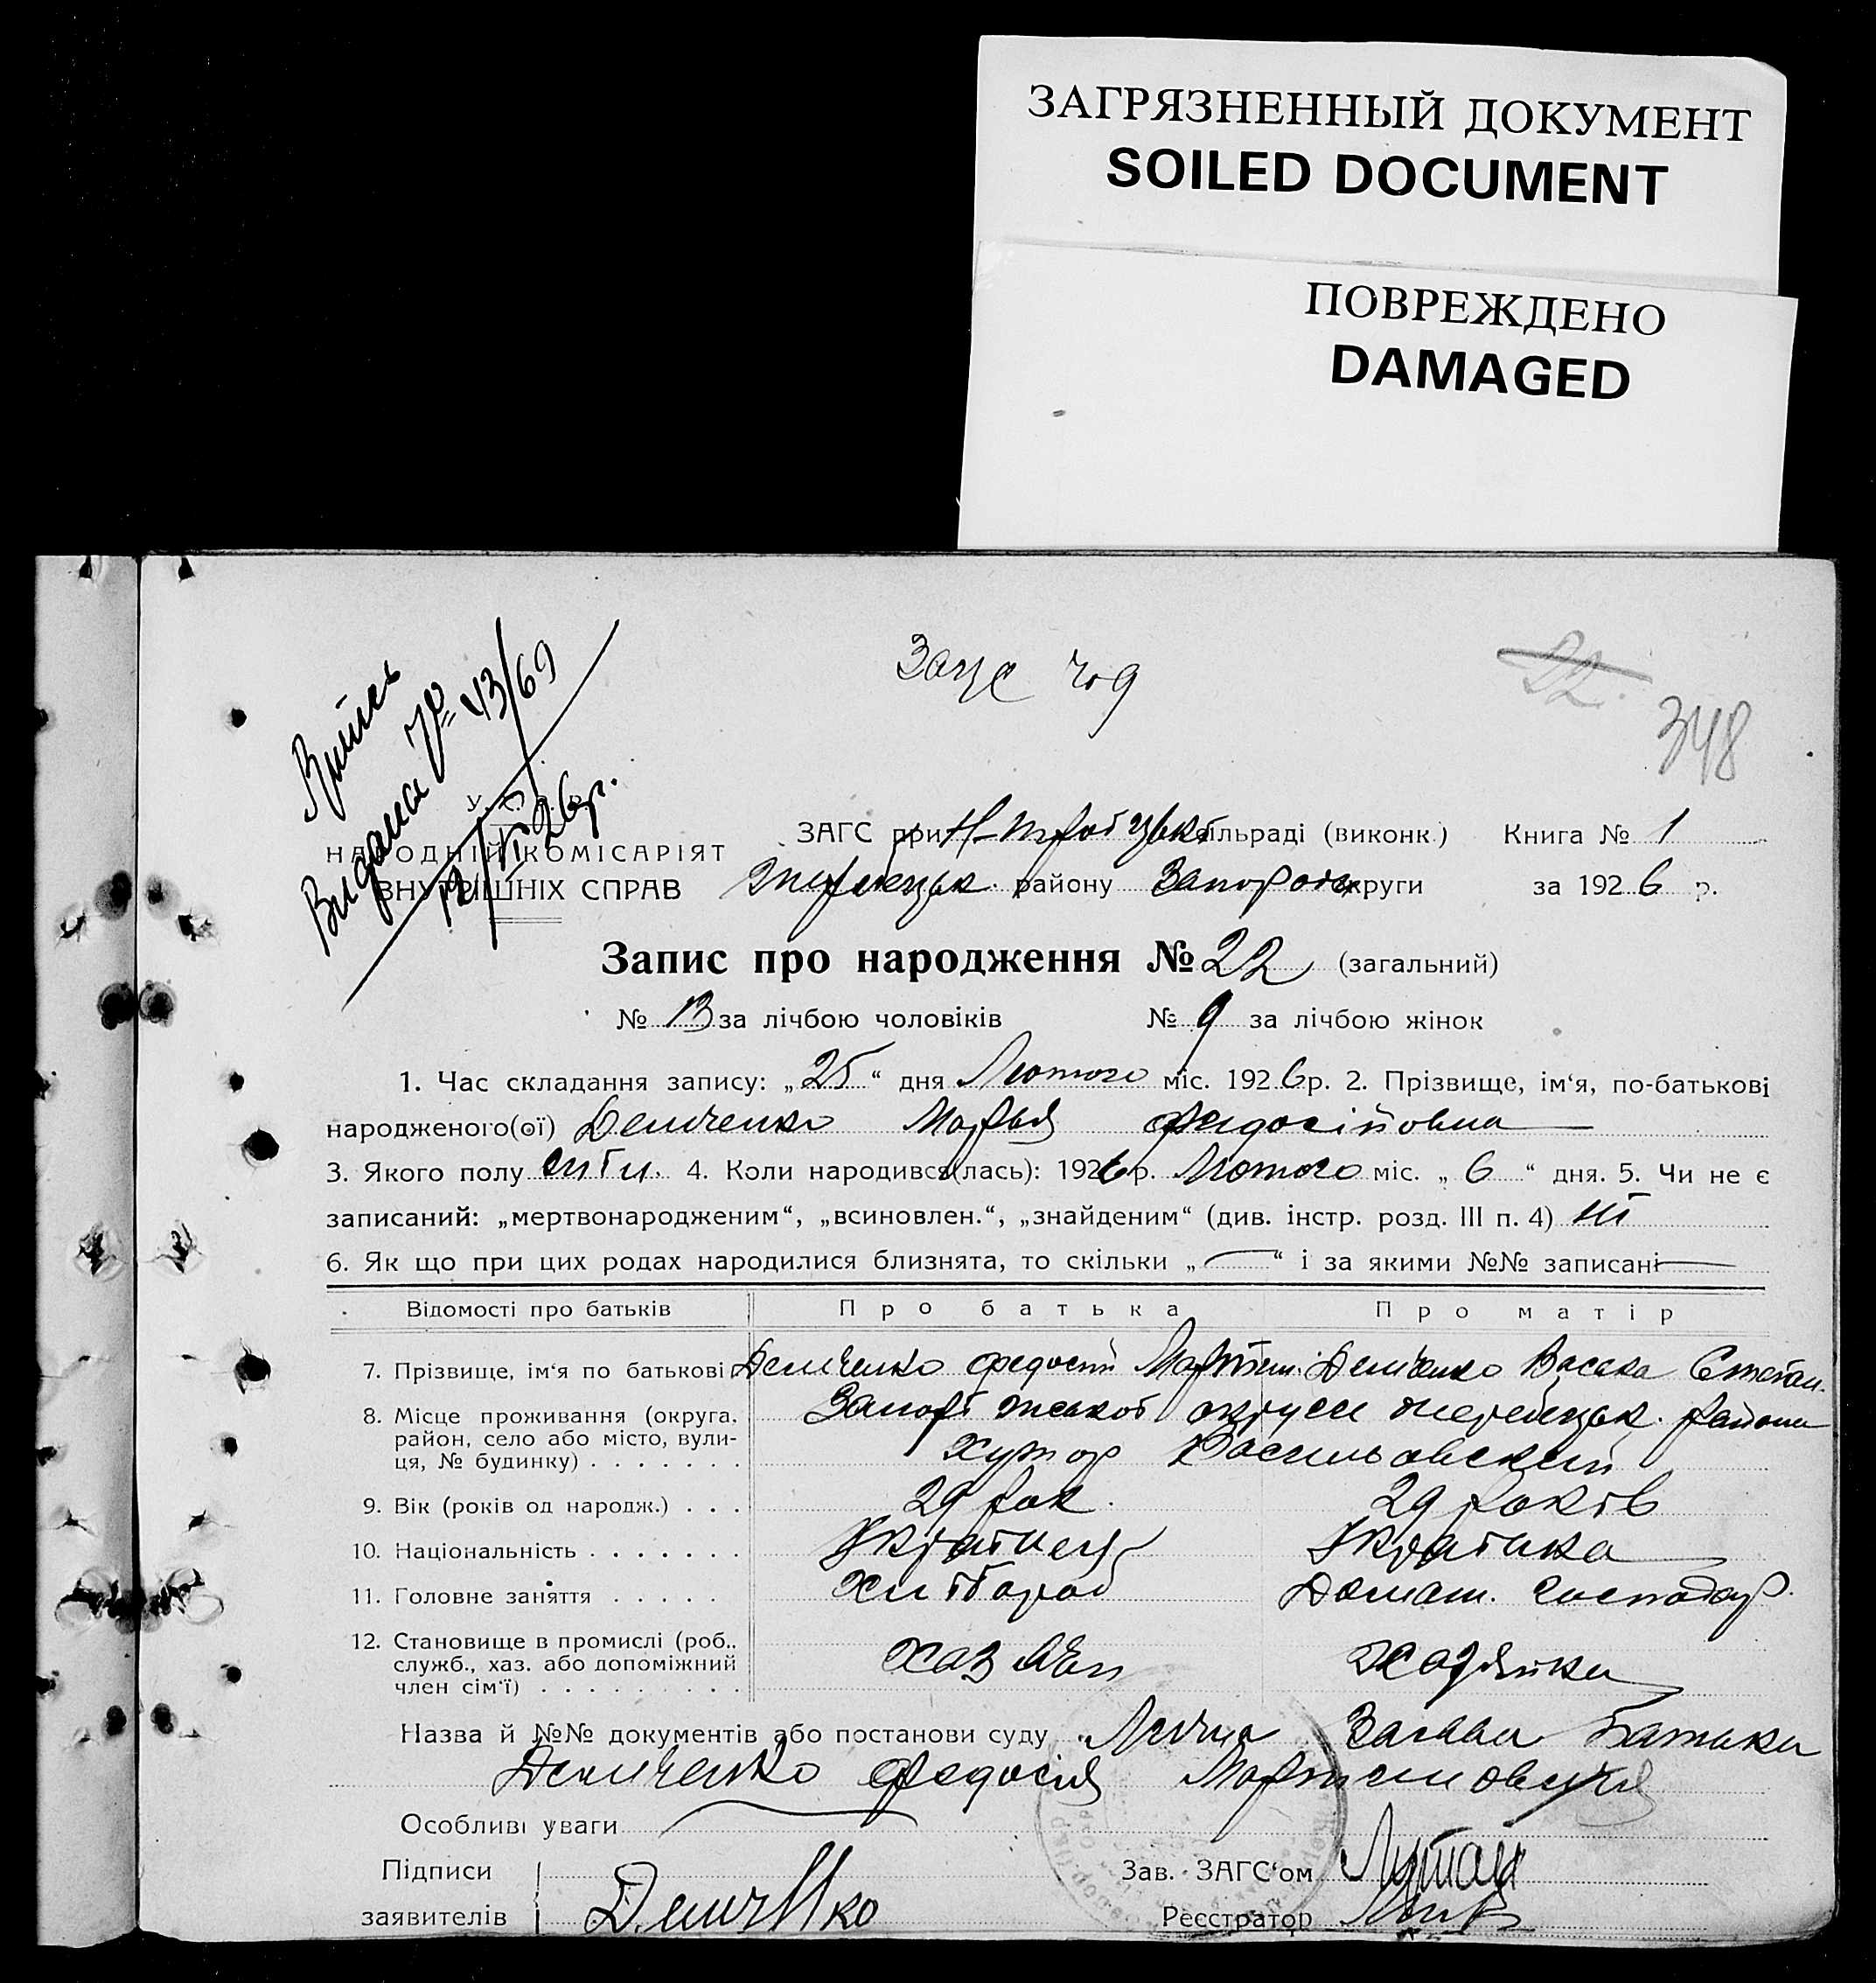 ЗАГРЯЗНЕННЫЙ ДОКУМЕНТ
SOILED DOCUMENT
ПОВРЕЖДЕНО
DAMAGED
22.
348
Видана № 43/69
У. С. Р. Р.
НАРОДНІЙ КОМІСАРІЯТ
ВНУТРІШНІХ СПРАВ
ЗАГС при сільраді (виконк.) Книга № 1
району округи за 1926 р.
Запис про народження № 22 (загальний)
№ 13 за лічбою чоловіків № 9 за лічбою жінок
1. Час складання запису: „25“ дня Лютого міс. 1926 р. 2. Прізвище, ім‘я, по-батькові
народженого(ої) Демченко Марья Федосіївна
3. Якого полу 4. Коли народився(лась): 1926 р. Лютого міс. „6“ дня. 5. Чи не є
записаний: „мертвонародженим“, „всиновлен.“, „знайденим“ (див. інстр. розд. III п. 4) ні
6. Як що при цих родах народилися близнята, то скільки „—“ і за якими №№ записані —
Відомості про батьків Про батька Про матір
7. Прізвище, ім‘я по батькові Демченко Федосій Демченко Васса Степан.
8. Місце проживання (округа, район, село або місто, вулиця, № будинку) округи району
хутор Васильовский
9. Вік (років од народж.) 29 рок. 29 років
10. Національність Українец Українка
11. Головне заняття Хлібороб Домаш. господар.
12. Становище в промислі (роб., служб., хаз. або допоміжний член сім‘ї) Хазяїн Хазяйка
Назва й №№ документів або постанови суду Лична Заява Батька
Демченко Федосія Мартиновича
Особливі уваги
Підписи заявителів Демченко
Зав. ЗАГС‘ом
Реєстратор